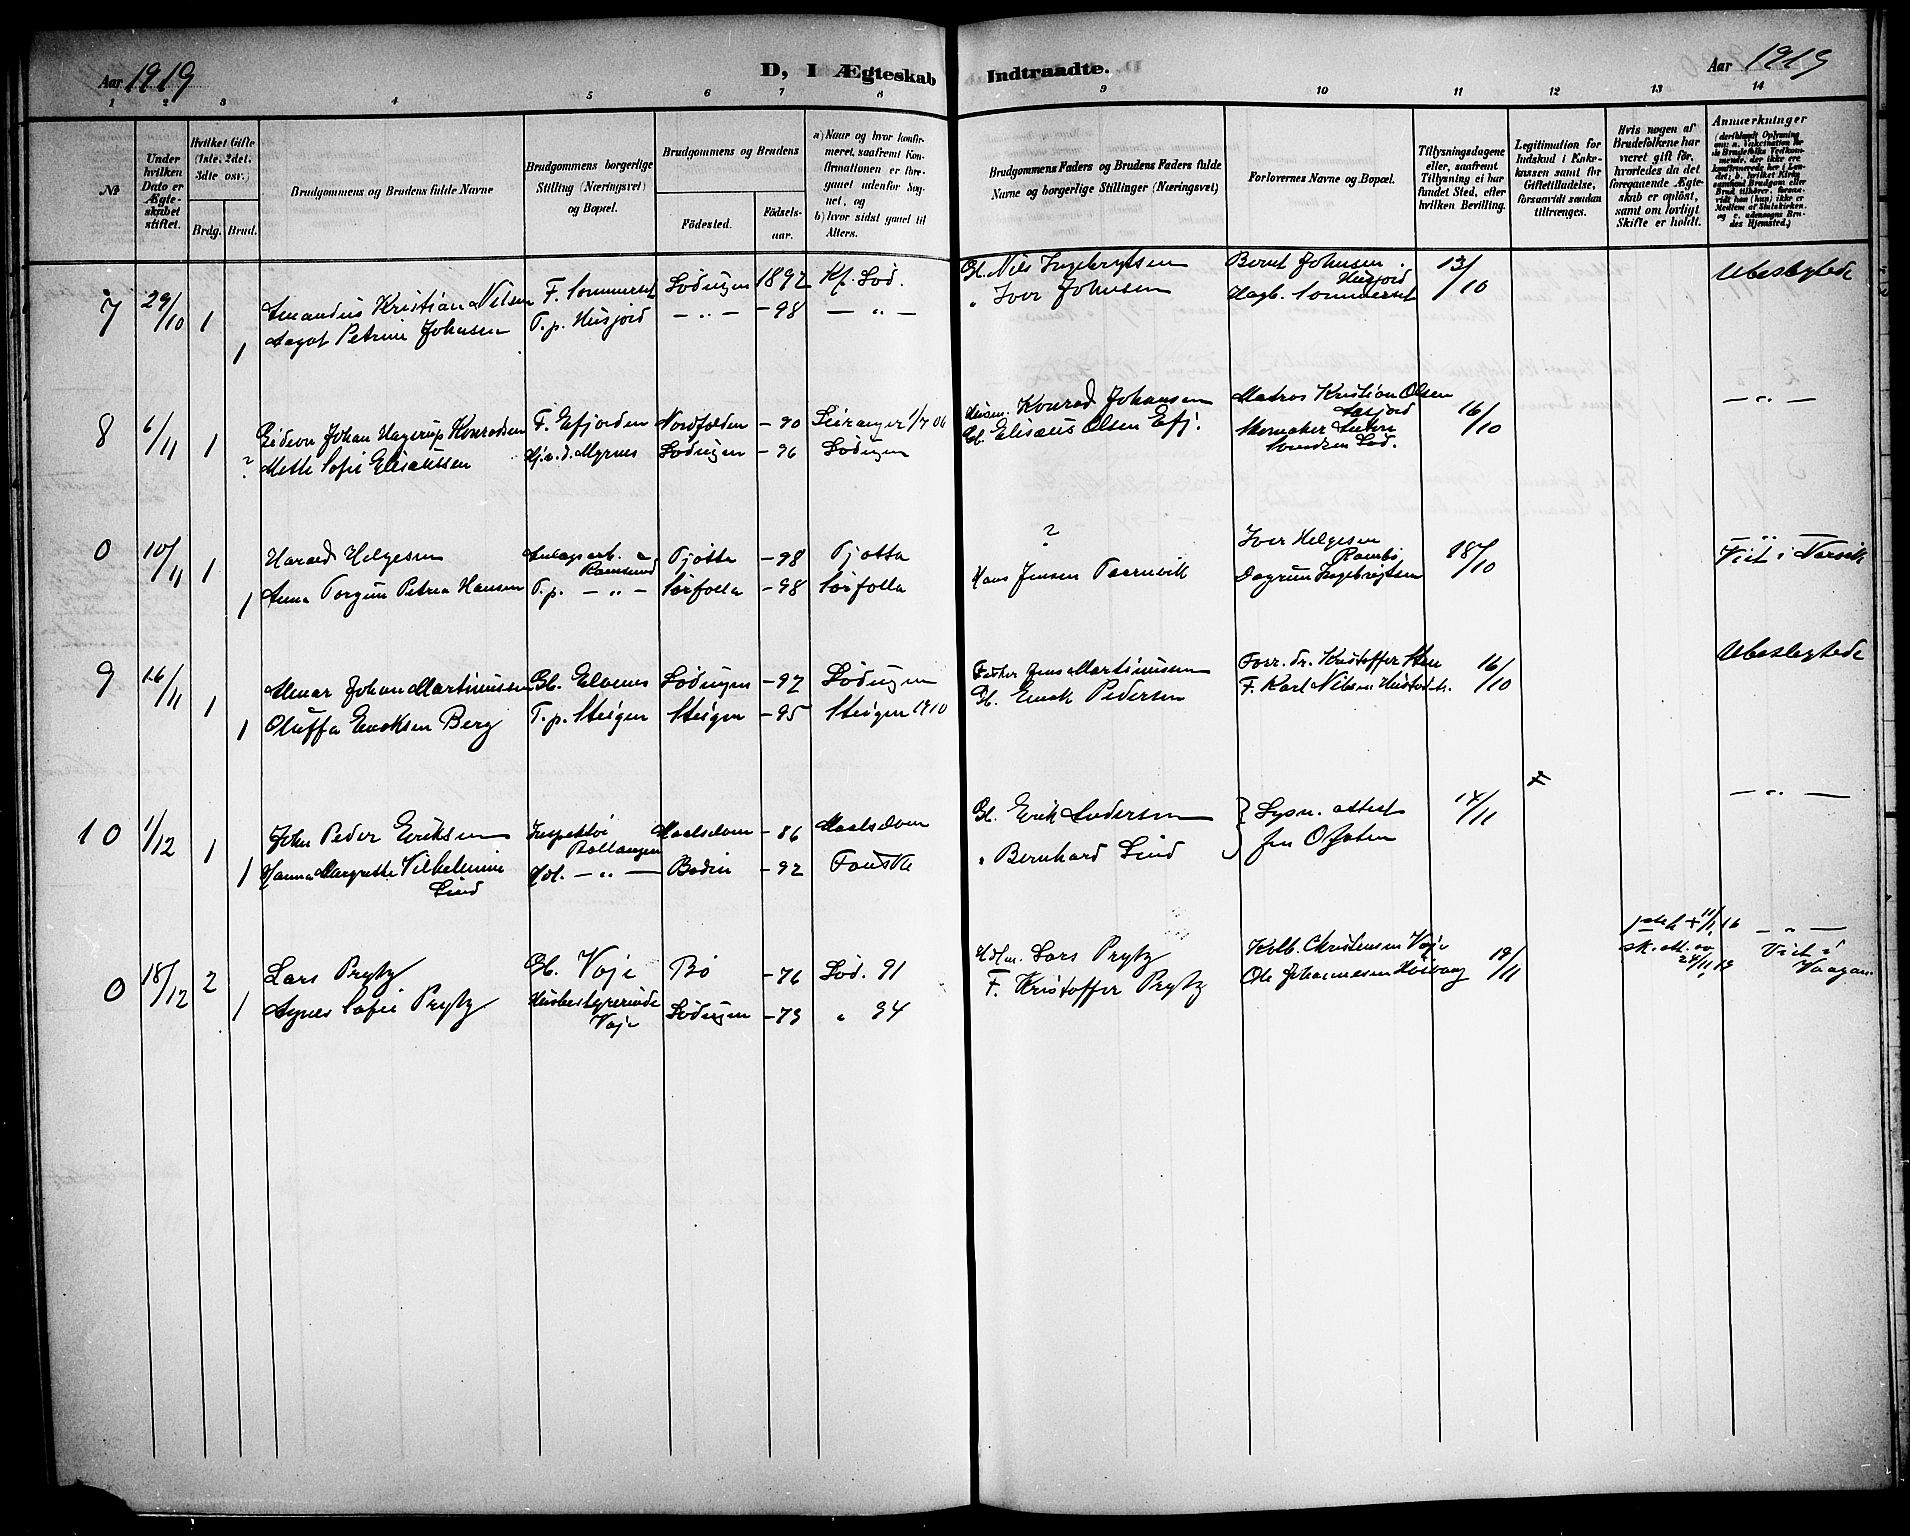 Aar 1919
D, I Ægteskab
Indtraadte.
Aar 1919
1 2 3 4 5 6 7 8 9 10 11 12 13 14
№
Under hvilken Dato er Ægteskabet stiftet.
Hvilket Gifte (1ste, 2det, 3dte osv.)
Brdg. Brud.
Brudgommens og Brudens fulde Navne
Brudgommens borgerlige Stilling (Næringsvei) og Bopæl.
Brudgommens og Brudens
Födested.
Födsels-aar.
a) Naar og hvor konfirmeret, saafremt Konfirmationen er foregaaet udenfor Sognet, og
b) hvor sidst gaaet til Alters.
Brudgommens Faders og Brudens Faders fulde Navne og borgerlige Stillinger (Næringsvei)
Forlovernes Navne og Bopæl.
Tillysningsdagene eller, saafremt Tillysning ei har fundet Sted, efter hvilken Bevilling.
Legitimation for Indskud i Enkekassen samt for Giftetilladelse, forsaavidt saadan tiltrænges.
Hvis nogen af Brudefolkene har været gift för, hvorledes da det foregaaende Ægteskab er oplöst, samt om lovligt Skifte er holdt.
Anmærkninger
7 29/10 1 Amandus Kristian Nilsen F. Sommerset Lødingen 1892 Kf. Lød. Gb. Nils Ingebrigtsen Bernt Johnsen Husjord 13/10 Ubeslegtede
1 Aagot Petrine Johnsen T.p. Husjord — " — - 98 — " — " Iver Johnsen Hagb. Sommerset
8 6/11 1 Gideon Johan Hagerup Konradsen F. Efjorden Nordfolden - 90 Leiranger 1/7 06 Husm. Konrad Johansen Matros Kristian Olsen 16/10 — " —
? Mette Sofie Elisæussen Myrnes Lødingen - 96 Lødingen Gb. Elisæus Olsen Efj. Skomaker Lød.
0 10/11 1 Harald Helgesen Anlagsarb. Ramsund Tjøtta - 98 Tjøtta ? Iver Helgesen 18/10 Viet i Narvik
1 Anna Torgun Petrea Hansen T.p. — " — Sørfolla - 98 Sørfolla Hans Jensen Dagrun Ingebrigtsen
9 16/11 1 Almar Johan Martinussen Gb. Elvenes Lødingen - 97 Lødingen Fisker Jens Martinussen Forr. dr. Kristoffer 16/10 Ubeslegtede
1 Oluffa Enoksen Berg T.p. Steigen Steigen - 95 Steigen 1910 Gb. Enok Pedersen F. Karl Nilsen
10 1/12 1 John Peder Eriksen Inspektør Ballangen Maalselven - 86 Maalselven Gb. Erik Andersen } Lysn. attest 14/11 — " —
1 Hanna Margrethe Vilhelmine Lind — " — Bodin - 92 Fauske " Bernhard Lind fra Ofoten
0 18/12 2 Lars Prytz Gb. Voje Bø - 76 Lød. 91 Lars Prytz Kolb. Christensen Voje 19/11 — " — Viet i Vaagan
1 Agnes Sofie Prytz Husbestyrerinde Voje Lødingen - 79 " 94 F. Kristoffer Prytz Ole Johannesen